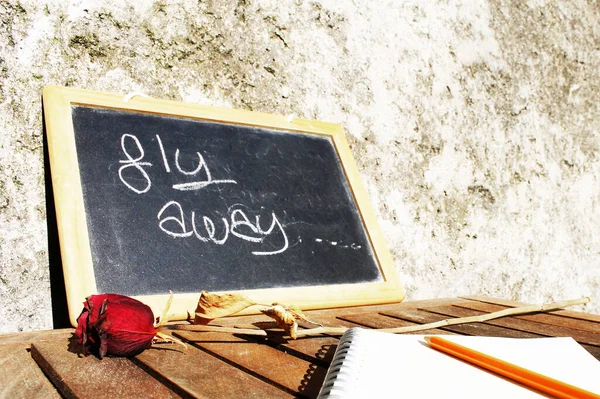 fly
away .....